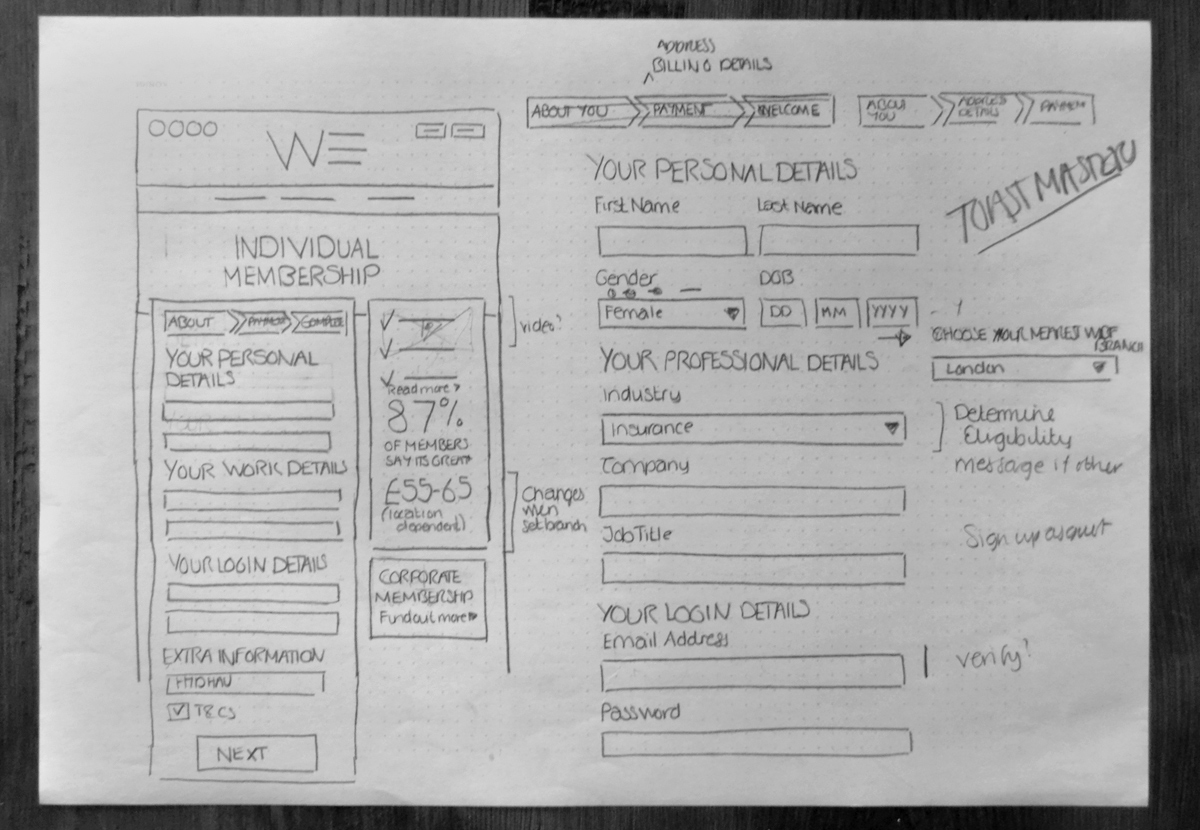 ADDRESS
BILLING DETAILS
ABOUT YOU
PAYMENT
WELCOME
ABOUT YOU
ADDRESS DETAILS
PAYMENT
WE
INDIVIDUAL
MEMBERSHIP
ABOUT
PAYMENT
YOUR PERSONAL
DETAILS
YOUR WORK DETAILS
YOUR LOGIN DETAILS
EXTRA INFORMATION
T&CS
NEXT
Read more >
87%
OF MEMBERS
SAY ITS GREAT
£55-65
(location
dependent)
CORPORATE
MEMBERSHIP
Fund out more
video?
Changes
when
set branch
YOUR PERSONAL DETAILS
First Name
Last Name
Gender
DOB
Female
DD
MM
YYYY
YOUR PROFESSIONAL DETAILS
Industry
Insurance
Company
Job Title
YOUR LOGIN DETAILS
Email Address
Password
TOAST MASTERS
CHOOSE YOUR NEAREST
BRANCH
London
Determine
Eligibility
message if other
Sign up as guest
verify?